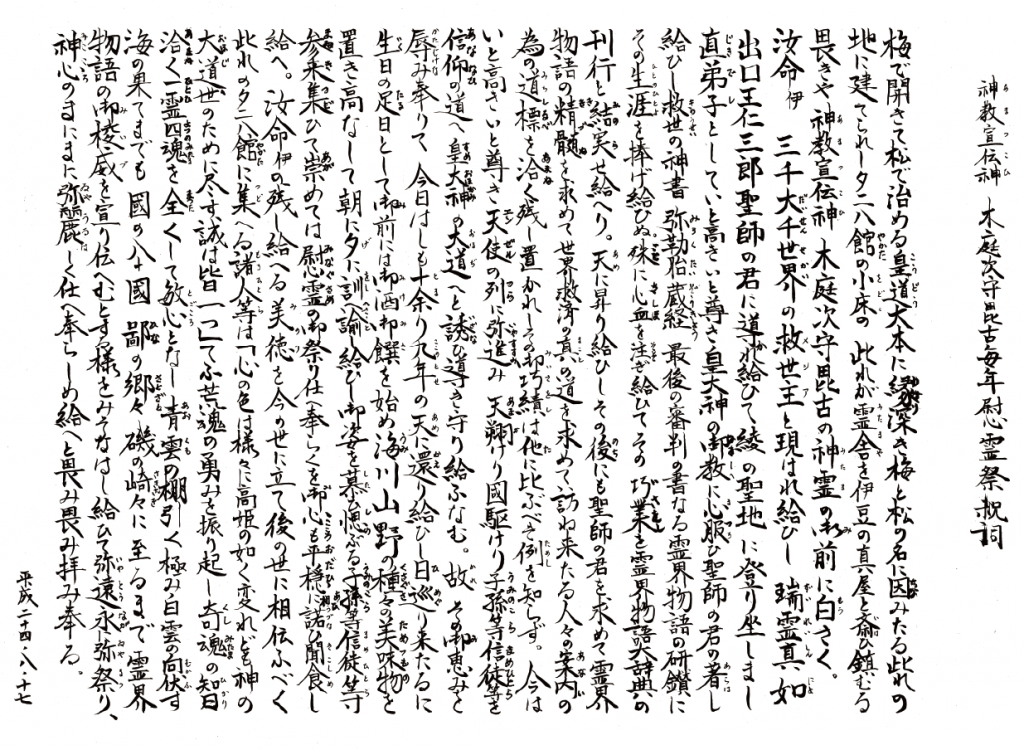 神教宣伝神 木庭次守毘古毎年慰霊祭祝詞
梅で開きて松で治める皇道大本に縁深き梅と松の名に因みたる此れの
地に建てられし夕二八館の小床の 此れが霊舎を伊豆の真屋と斎ひ鎮むる
畏きや 神教宣伝神 木庭次守毘古の神霊の御前に白さく。
汝命伊 三千大千世界の救世王と現はれ給ひし 瑞霊真如
出口王仁三郎聖師の君に導かれ給ひて綾の聖地に登り坐しまし
直弟子としていと高きいと尊き皇大神の御教に心服ひ聖師の君の著し
給ひし救世の神書 弥勒胎蔵経 最後の審判の書なる霊界物語の研鑽に
その生涯を捧げ給ひぬ殊に心血を注ぎ給ひてその 功業を霊界物語大辞典の
刊行と結実せ給へり。天に昇り給ひしその後にも聖師の君を求めて霊界
物語の精髄を求めて世界救済の真の道を求めて訪ね来たる人々の案内の
為の道標を洽く残し置かれしその御功績は他に比ぶべき例を知らず。今は
いと高きいと尊き天使の列に弥進み 天翔けり國駆けり子孫等信徒等を
信仰の道へ 皇大神の大道へと誘ひ導き守り給ふなむ。故 その御恵みを
辱み奉りて 今日はしも十余り九年の天に還り給ひし日巡り来たるに
生日の足日として御前には御酒御饌を始め海川山野の種々の美味物を
置き高なして朝に夕に訓諭し給ひし御姿を慕ひ偲ぶる子孫等信徒等
参来集ひて崇めては慰霊の御祭り仕へ奉らくを御心も平穏に諾ひ聞食し
給へ。汝命伊の残し給へる美徳を今の世に立て後の世に相伝ふべく
此れの夕二八館に集へる諸人等は「心の色は様々に高姫の如く変れども神の
大道世のために尽す誠は皆一つ」てふ荒魂の勇みを振り起し奇魂の知日
洽く一霊四魂を全くして敏心となし 青雲の棚引く極み白雲の向伏す
海の果てまでも 國の八十國 鄙の郷々 磯の崎々に至るまで 霊界
物語の御稜威を宣り伝へむとす様をみそなはし給ひて弥遠永に弥祭り、
神心のまにまに弥麗しく仕へ奉らしめ給へと畏み畏み拝み奉る。
平成二十四・八・十七